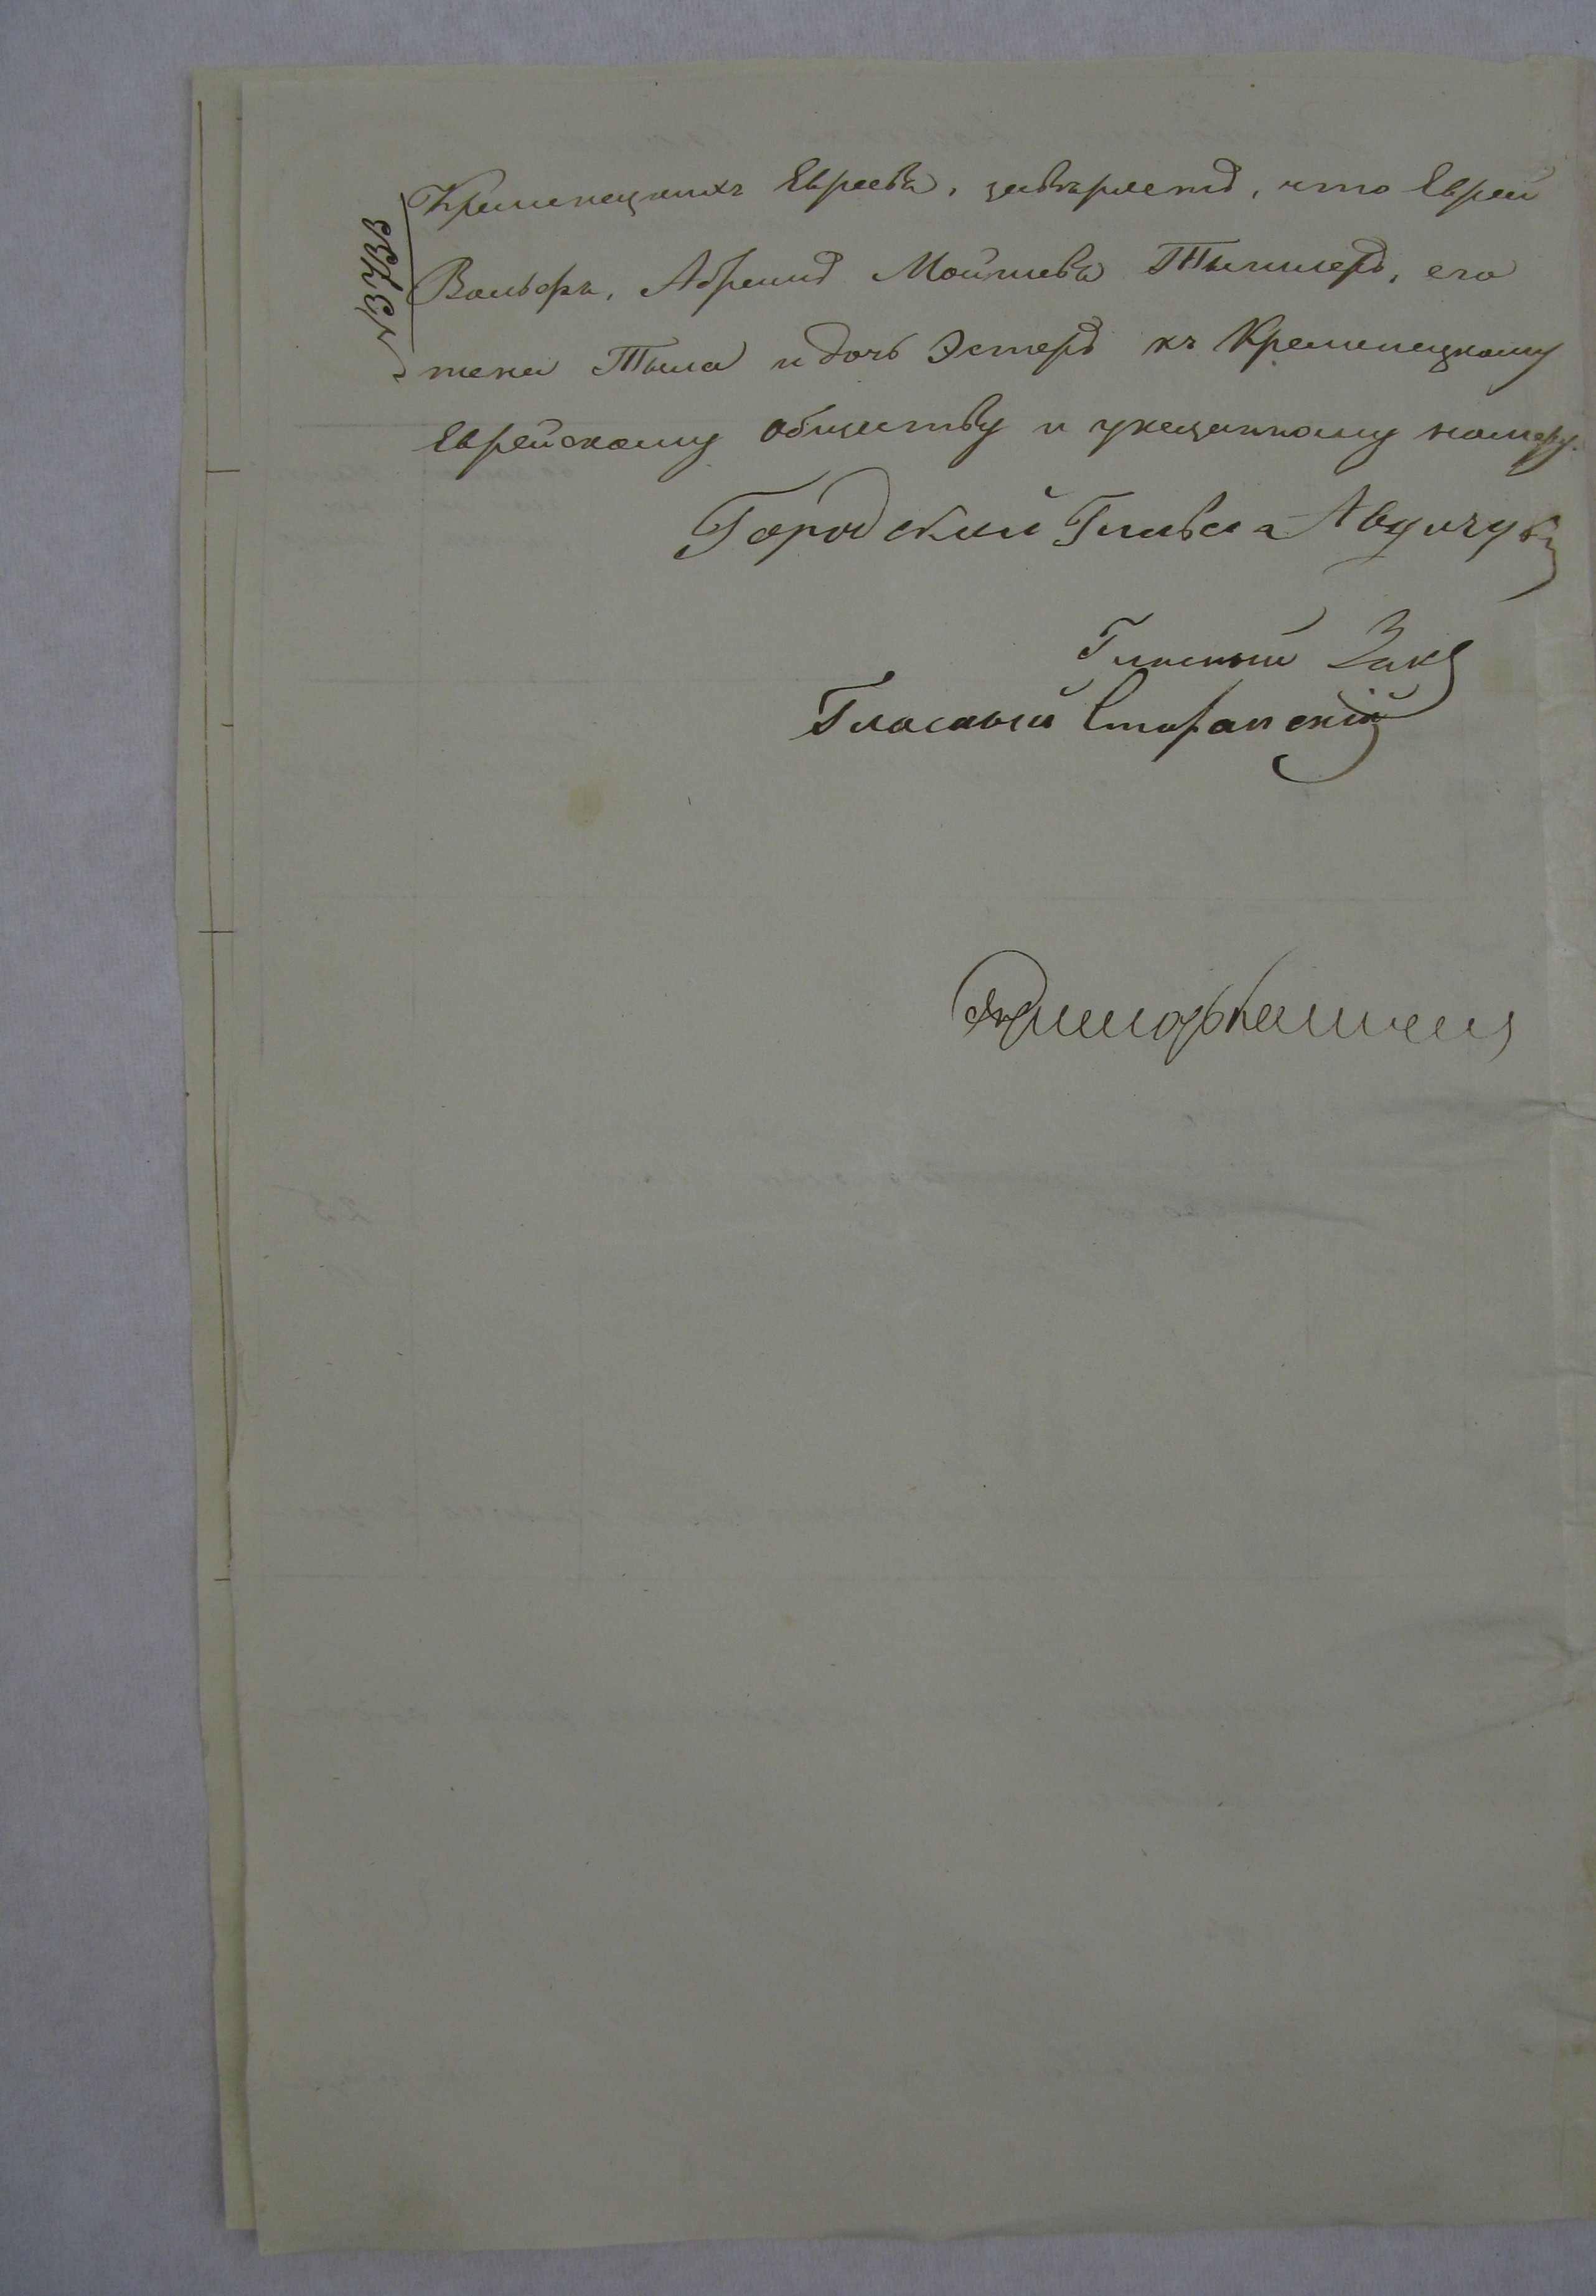 № 3733
Кременецкихъ Евреевъ, завѣряетъ, что Еврей
Вольфъ, Абрамъ Мойшевъ его
жена Тыла и дочь Эстеръ къ Кременецкому
Еврейскому обществу и указанному номеру.
Городской Глава
Гласный Закъ
Гласный Стефанскій